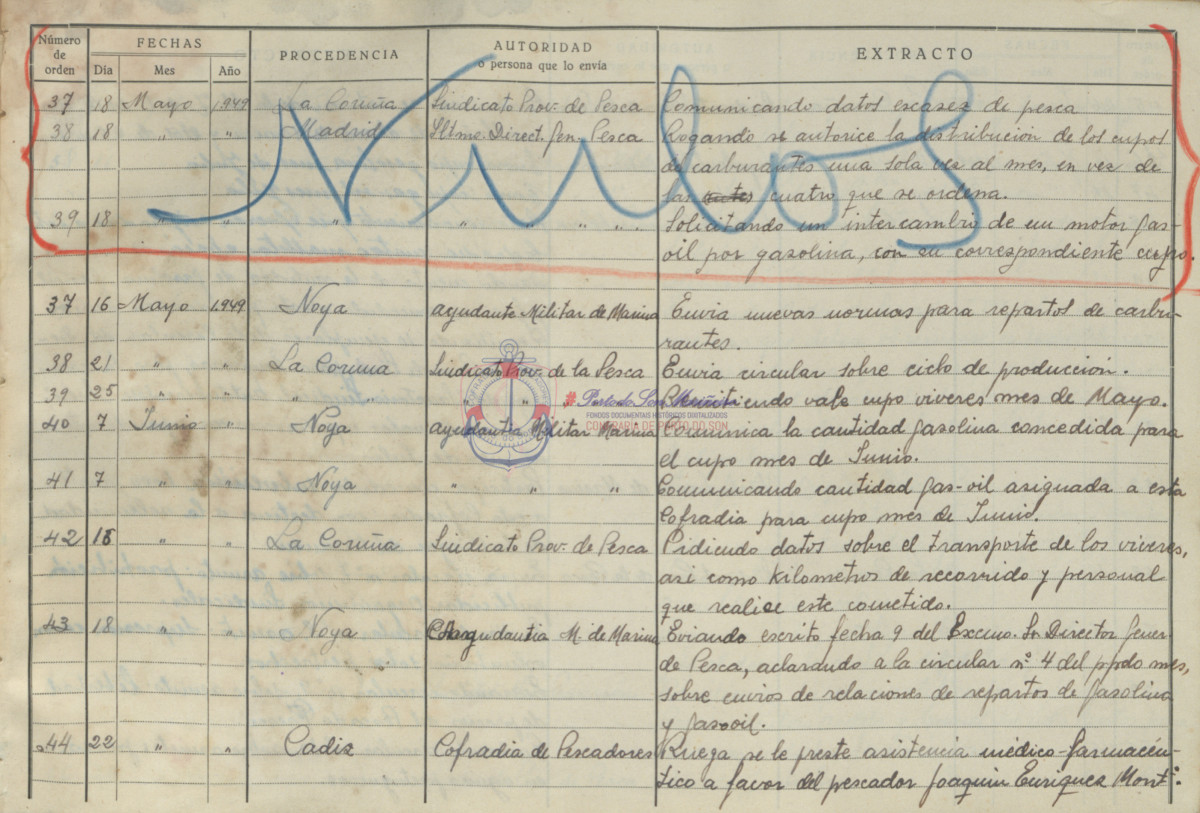 Número de orden FECHAS PROCEDENCIA AUTORIDAD o persona que lo envía EXTRACTO
Día Mes Año
Nulos
37 18 Mayo 1.949 La Coruña Sindicato Prov. de Pesca Comunicando datos escasez de pesca
38 18 " " Madrid Iltmo. Direct. Gen. Pesca Rogando se autorice la distribución de los cupos
de carburantes una sola vez al mes, en vez de
las cuatro que se ordena.
39 18 " " " " " " " Solicitando un intercambio de un motor gas-
oil por gasolina, con su correspondiente cupo.
37 16 Mayo 1.949 Noya ayudante Militar de Marina Envia nuevas normas para repartos de carbu-
rantes.
38 21 " " La Coruña Sindicato Prov. de la Pesca Envia circular sobre ciclo de producción.
39 25 " " " " " " Remitiendo vale cupo viveres mes de Mayo.
40 7 Junio " Noya ayudantia Militar Marina Comunica la cantidad gasolina concedida para
el cupo mes de Junio.
41 7 " " Noya " " " Comunicando cantidad gas-oil asignada a esta
Cofradia para cupo mes de Junio.
42 18 " " La Coruña Sindicato Prov. de Pesca Pidiendo datos sobre el transporte de los viveres,
asi como kilometros de recorrido y personal
que realice este cometido.
43 18 " " Noya ayudantia M. de Marina Eviando escrito fecha 9 del Excmo. Sr. Director Gener
de Pesca, aclarando a la circular nº 4 del ppdo mes,
sobre envios de relaciones de repartos de gasolina
y gas-oil.
44 22 " " Cadiz Cofradia de Pescadores Ruega se le preste asistencia médico-farmacéu-
tico a favor del pescador Joaquin Enriquez Montº.
# Porto do Son Mariñeiro
FONDOS DOCUMENTAIS HISTÓRICOS DIXITALIZADOS
CONFRARÍA DE PORTO DO SON